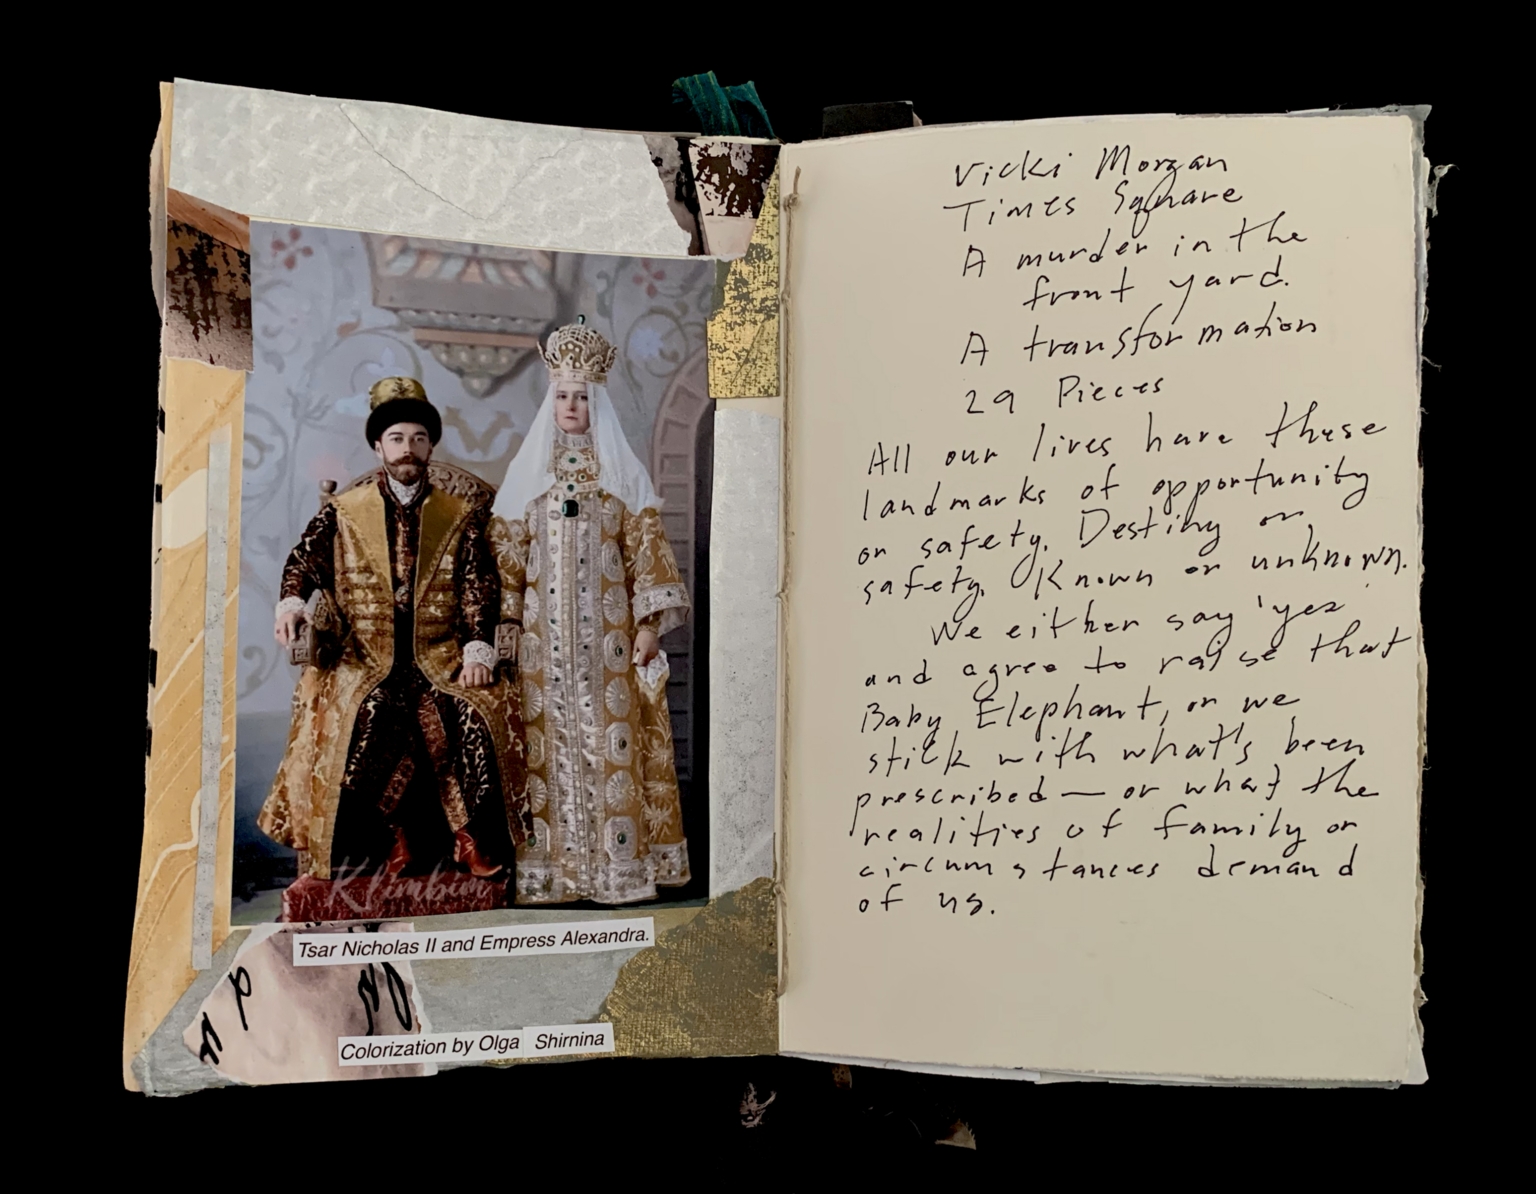 Klimbim
Tsar Nicholas II and Empress Alexandra.
Colorization by Olga Shirnina
Vicki Morgan
Times Square
A murder in the
front yard.
A transformation
29 Pieces
All our lives have these
landmarks of opportunity
or safety. Destiny or
safety. Known or unknown.
We either say 'yes'
and agree to raise that
Baby Elephant, or we
stick with what's been
prescribed — or what the
realities of family or
circumstances demand
of us.